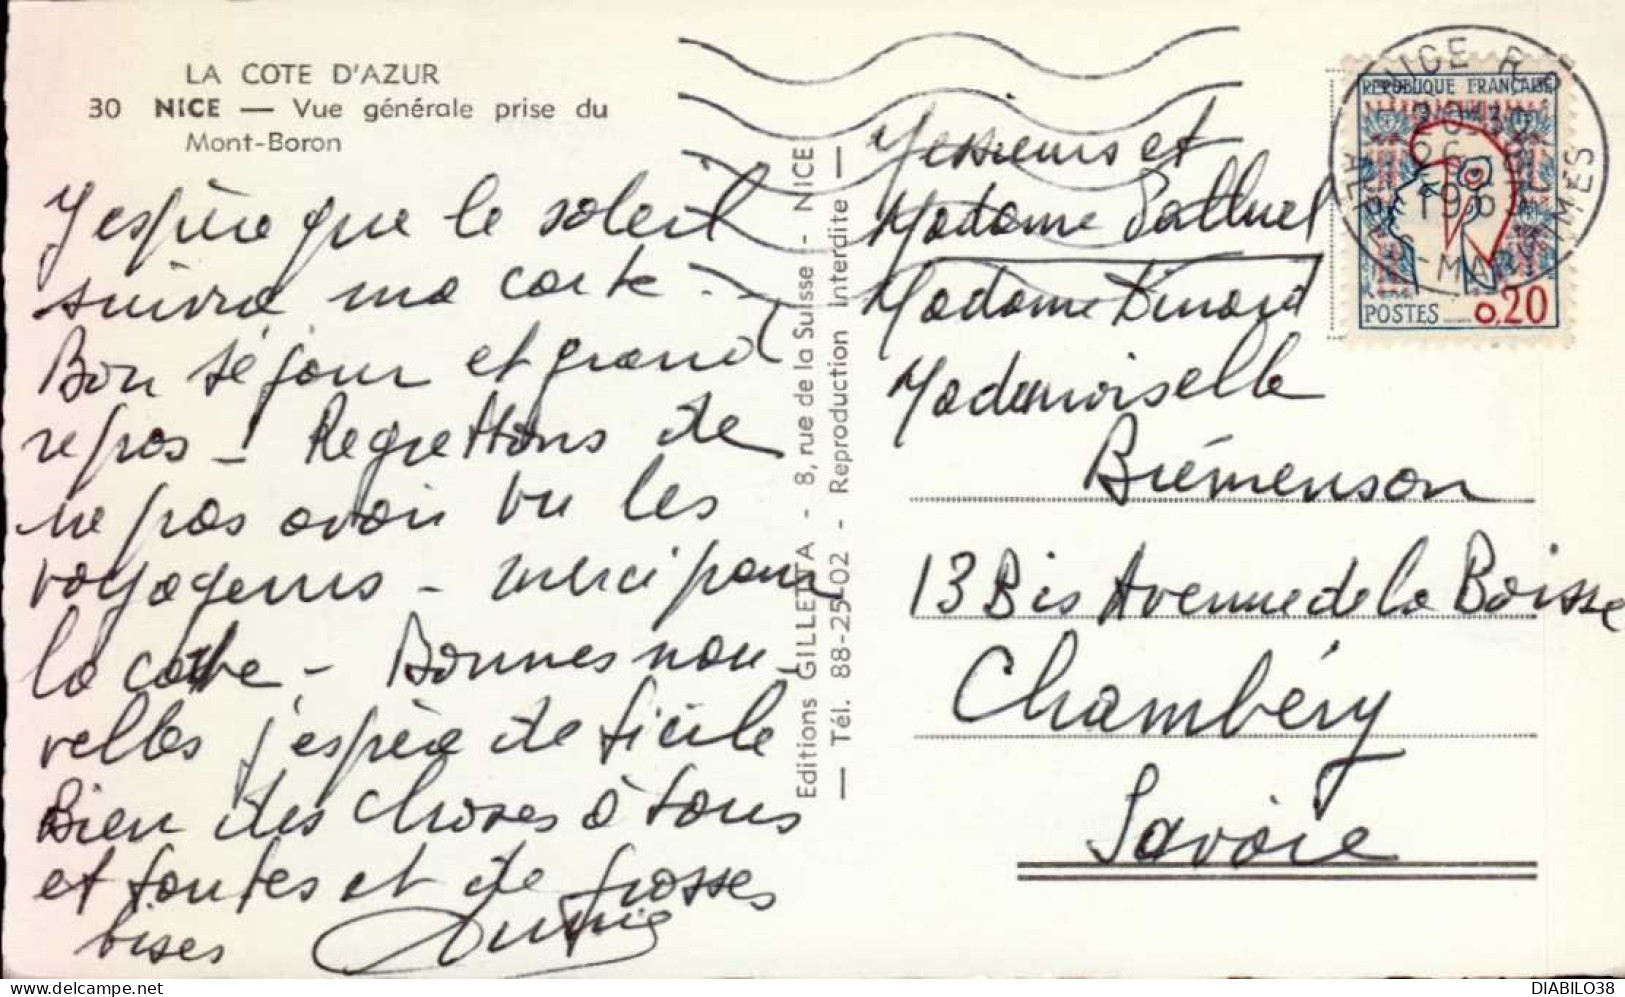 LA COTE D'AZUR
30 NICE — Vue générale prise du
Mont-Boron
J'espère que le soleil
suivra ma carte -
Bon séjour et grand
repos - Regrettons de
ne pas avoir vu les
voyageurs - merci pour
la carte - Bonnes nou-
velles j'espère de Sicile
Bien des choses à tous
et toutes et de grosses
bises
Editions GILLETTA - 8, rue de la Suisse - NICE
— Tél. 88-25-02 - Reproduction interdite —
Messieurs et
Madame
Madame Dinard
Mademoiselle
Brémenson
13 Bis Avenue de la Boisse
Chambéry
Savoie
REPUBLIQUE FRANÇAISE
POSTES 0,20
NICE R.P.
ALPES-MARITIMES
DIABILO38